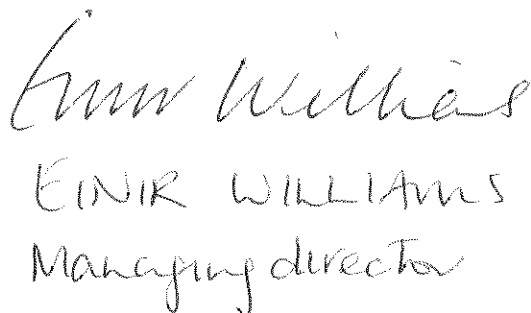 Einir Williams
EINIR WILLIAMS
Managing director